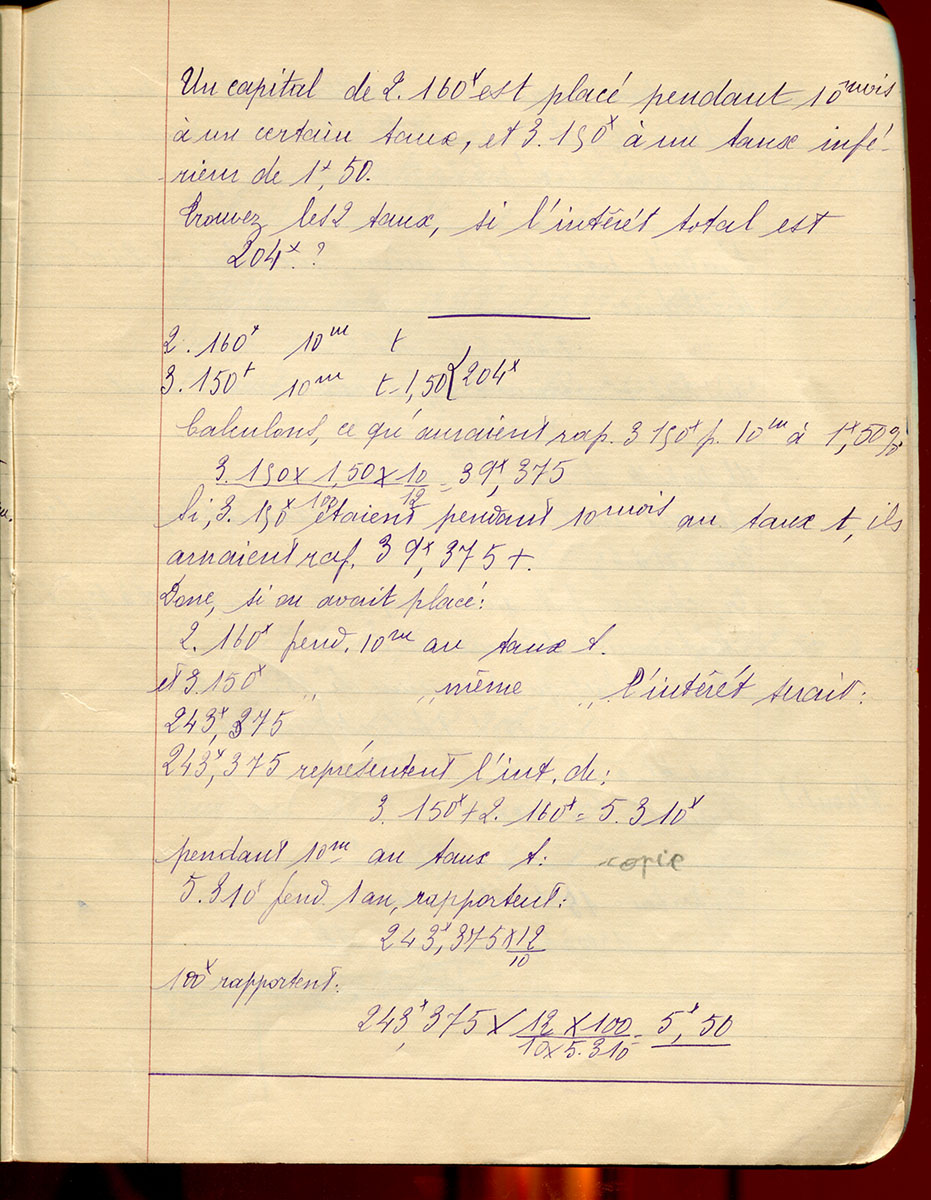 Un capital de 2.160ᶠ est placé pendant 10 mois
à un certain taux, et 3.150ᶠ à un taux infé-
rieur de 1ᶠ,50.
Trouvez les 2 taux, si l'intérêt total est
204ᶠ.?
2.160ᶠ 10ᵐ t
3.150ᶠ 10ᵐ t-1,50 { 204ᶠ
Calculons, ce qu'auraient rap. 3 150ᶠ p. 10ᵐ à 1ᶠ,50%
3.150 x 1,50 x 10 = 39ᶠ,375
100 12
Si, 3.150ᶠ étaient pendant 10 mois au taux t, ils
auraient rap. 39ᶠ,375 +.
Donc, si on avait placé:
2.160ᶠ pend. 10ᵐ au taux t.
et 3.150ᶠ " " même " l'intérêt serait:
243ᶠ,375
243ᶠ,375 représentent l'int. de:
3.150ᶠ + 2.160ᶠ = 5.310ᶠ
pendant 10ᵐ au taux t: copie
5.310ᶠ pend 1 an, rapportent:
243ᶠ,375 x 12
10
100ᶠ rapportent:
243ᶠ,375 x 12 x 100 = 5ᶠ,50
10 x 5.310